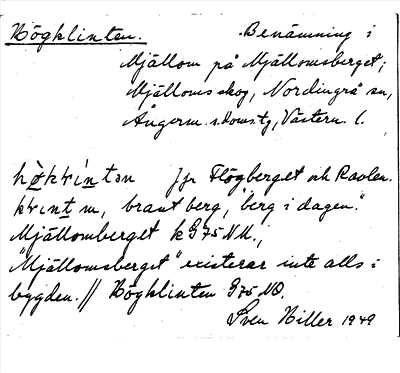 Högklinten. Benämning i
Mjällom på Mjällomsberget;
Mjälloms skog, Nordingrå sn,
Ångerm. s. doms tg, Västern. l.
högkḷi´ntən jfr Flögberget och Ravlen.
kḷint m, brant berg, "berg i dagen."
Mjällomberget k G75 NU.;
"Mjällomsberget" existerar inte alls i
bygden. // Högklinten G75 NO.
Sven Hiller 1949